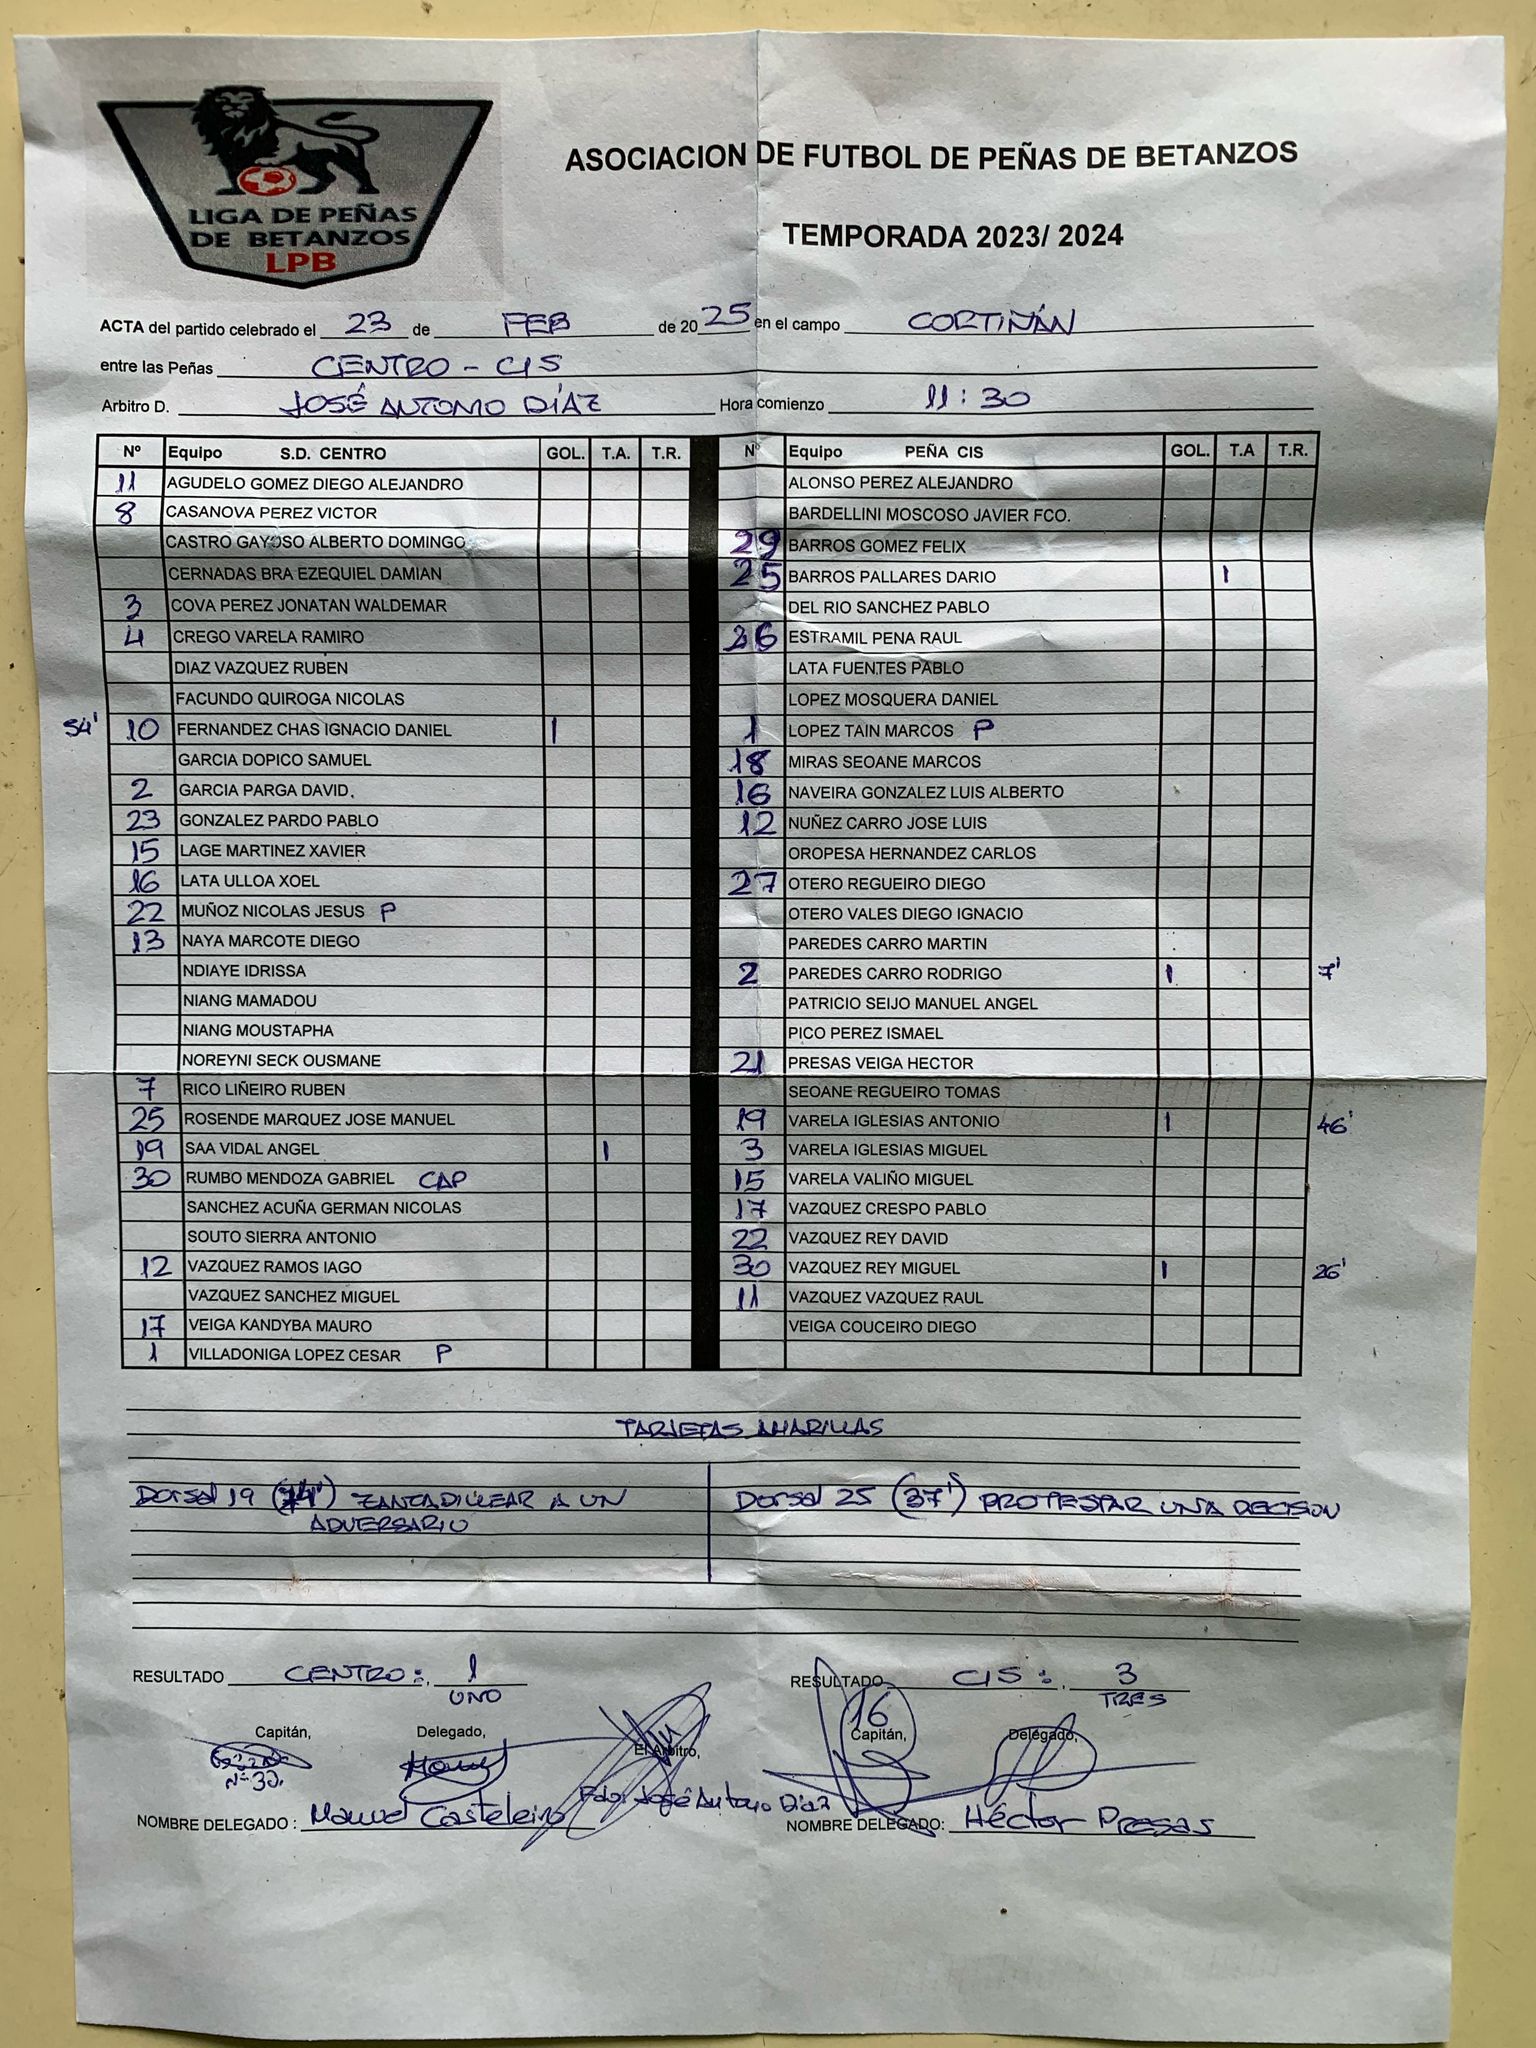 LIGA DE PEÑAS
DE BETANZOS
LPB
ASOCIACION DE FUTBOL DE PEÑAS DE BETANZOS
TEMPORADA 2023/ 2024
ACTA del partido celebrado el 23 de FEB de 2025 en el campo CORTIÑÁN
entre las Peñas CENTRO - CIS
Arbitro D. JOSÉ ANTONIO DÍAZ Hora comienzo 11:30
Nº Equipo S.D. CENTRO GOL. T.A. T.R. Nº Equipo PEÑA CIS GOL. T.A T.R.
11 AGUDELO GOMEZ DIEGO ALEJANDRO ALONSO PEREZ ALEJANDRO
8 CASANOVA PEREZ VICTOR BARDELLINI MOSCOSO JAVIER FCO.
CASTRO GAYOSO ALBERTO DOMINGO 29 BARROS GOMEZ FELIX
CERNADAS BRA EZEQUIEL DAMIAN 25 BARROS PALLARES DARIO 1
3 COVA PEREZ JONATAN WALDEMAR DEL RIO SANCHEZ PABLO
4 CREGO VARELA RAMIRO 26 ESTRAMIL PENA RAUL
DIAZ VAZQUEZ RUBEN LATA FUENTES PABLO
FACUNDO QUIROGA NICOLAS LOPEZ MOSQUERA DANIEL
54' 10 FERNANDEZ CHAS IGNACIO DANIEL 1 1 LOPEZ TAIN MARCOS P
GARCIA DOPICO SAMUEL 18 MIRAS SEOANE MARCOS
2 GARCIA PARGA DAVID. 16 NAVEIRA GONZALEZ LUIS ALBERTO
23 GONZALEZ PARDO PABLO 12 NUÑEZ CARRO JOSE LUIS
15 LAGE MARTINEZ XAVIER OROPESA HERNANDEZ CARLOS
16 LATA ULLOA XOEL 27 OTERO REGUEIRO DIEGO
22 MUÑOZ NICOLAS JESUS P OTERO VALES DIEGO IGNACIO
13 NAYA MARCOTE DIEGO PAREDES CARRO MARTIN
NDIAYE IDRISSA 2 PAREDES CARRO RODRIGO 1 7'
NIANG MAMADOU PATRICIO SEIJO MANUEL ANGEL
NIANG MOUSTAPHA PICO PEREZ ISMAEL
NOREYNI SECK OUSMANE 21 PRESAS VEIGA HECTOR
7 RICO LIÑEIRO RUBEN SEOANE REGUEIRO TOMAS
25 ROSENDE MARQUEZ JOSE MANUEL 19 VARELA IGLESIAS ANTONIO 1 46'
19 SAA VIDAL ANGEL 1 3 VARELA IGLESIAS MIGUEL
30 RUMBO MENDOZA GABRIEL CAP 15 VARELA VALIÑO MIGUEL
SANCHEZ ACUÑA GERMAN NICOLAS 17 VAZQUEZ CRESPO PABLO
SOUTO SIERRA ANTONIO 22 VAZQUEZ REY DAVID
12 VAZQUEZ RAMOS IAGO 30 VAZQUEZ REY MIGUEL 1 26'
VAZQUEZ SANCHEZ MIGUEL 11 VAZQUEZ VAZQUEZ RAUL
17 VEIGA KANDYBA MAURO VEIGA COUCEIRO DIEGO
1 VILLADONIGA LOPEZ CESAR P
TARJETAS AMARILLAS
Dorsal 19 (74') ZANCADILLEAR A UN Dorsal 25 (37') PROTESTAR UNA DECISON
ADVERSARIO
RESULTADO CENTRO: 1 RESULTADO CIS: 3
UNO TRES
16
Capitán, Delegado, El Arbitro, Capitán, Delegado,
Nº 30.
Fdo: José Antonio Díaz
NOMBRE DELEGADO: Manuel Casteleiro NOMBRE DELEGADO: Héctor Presas